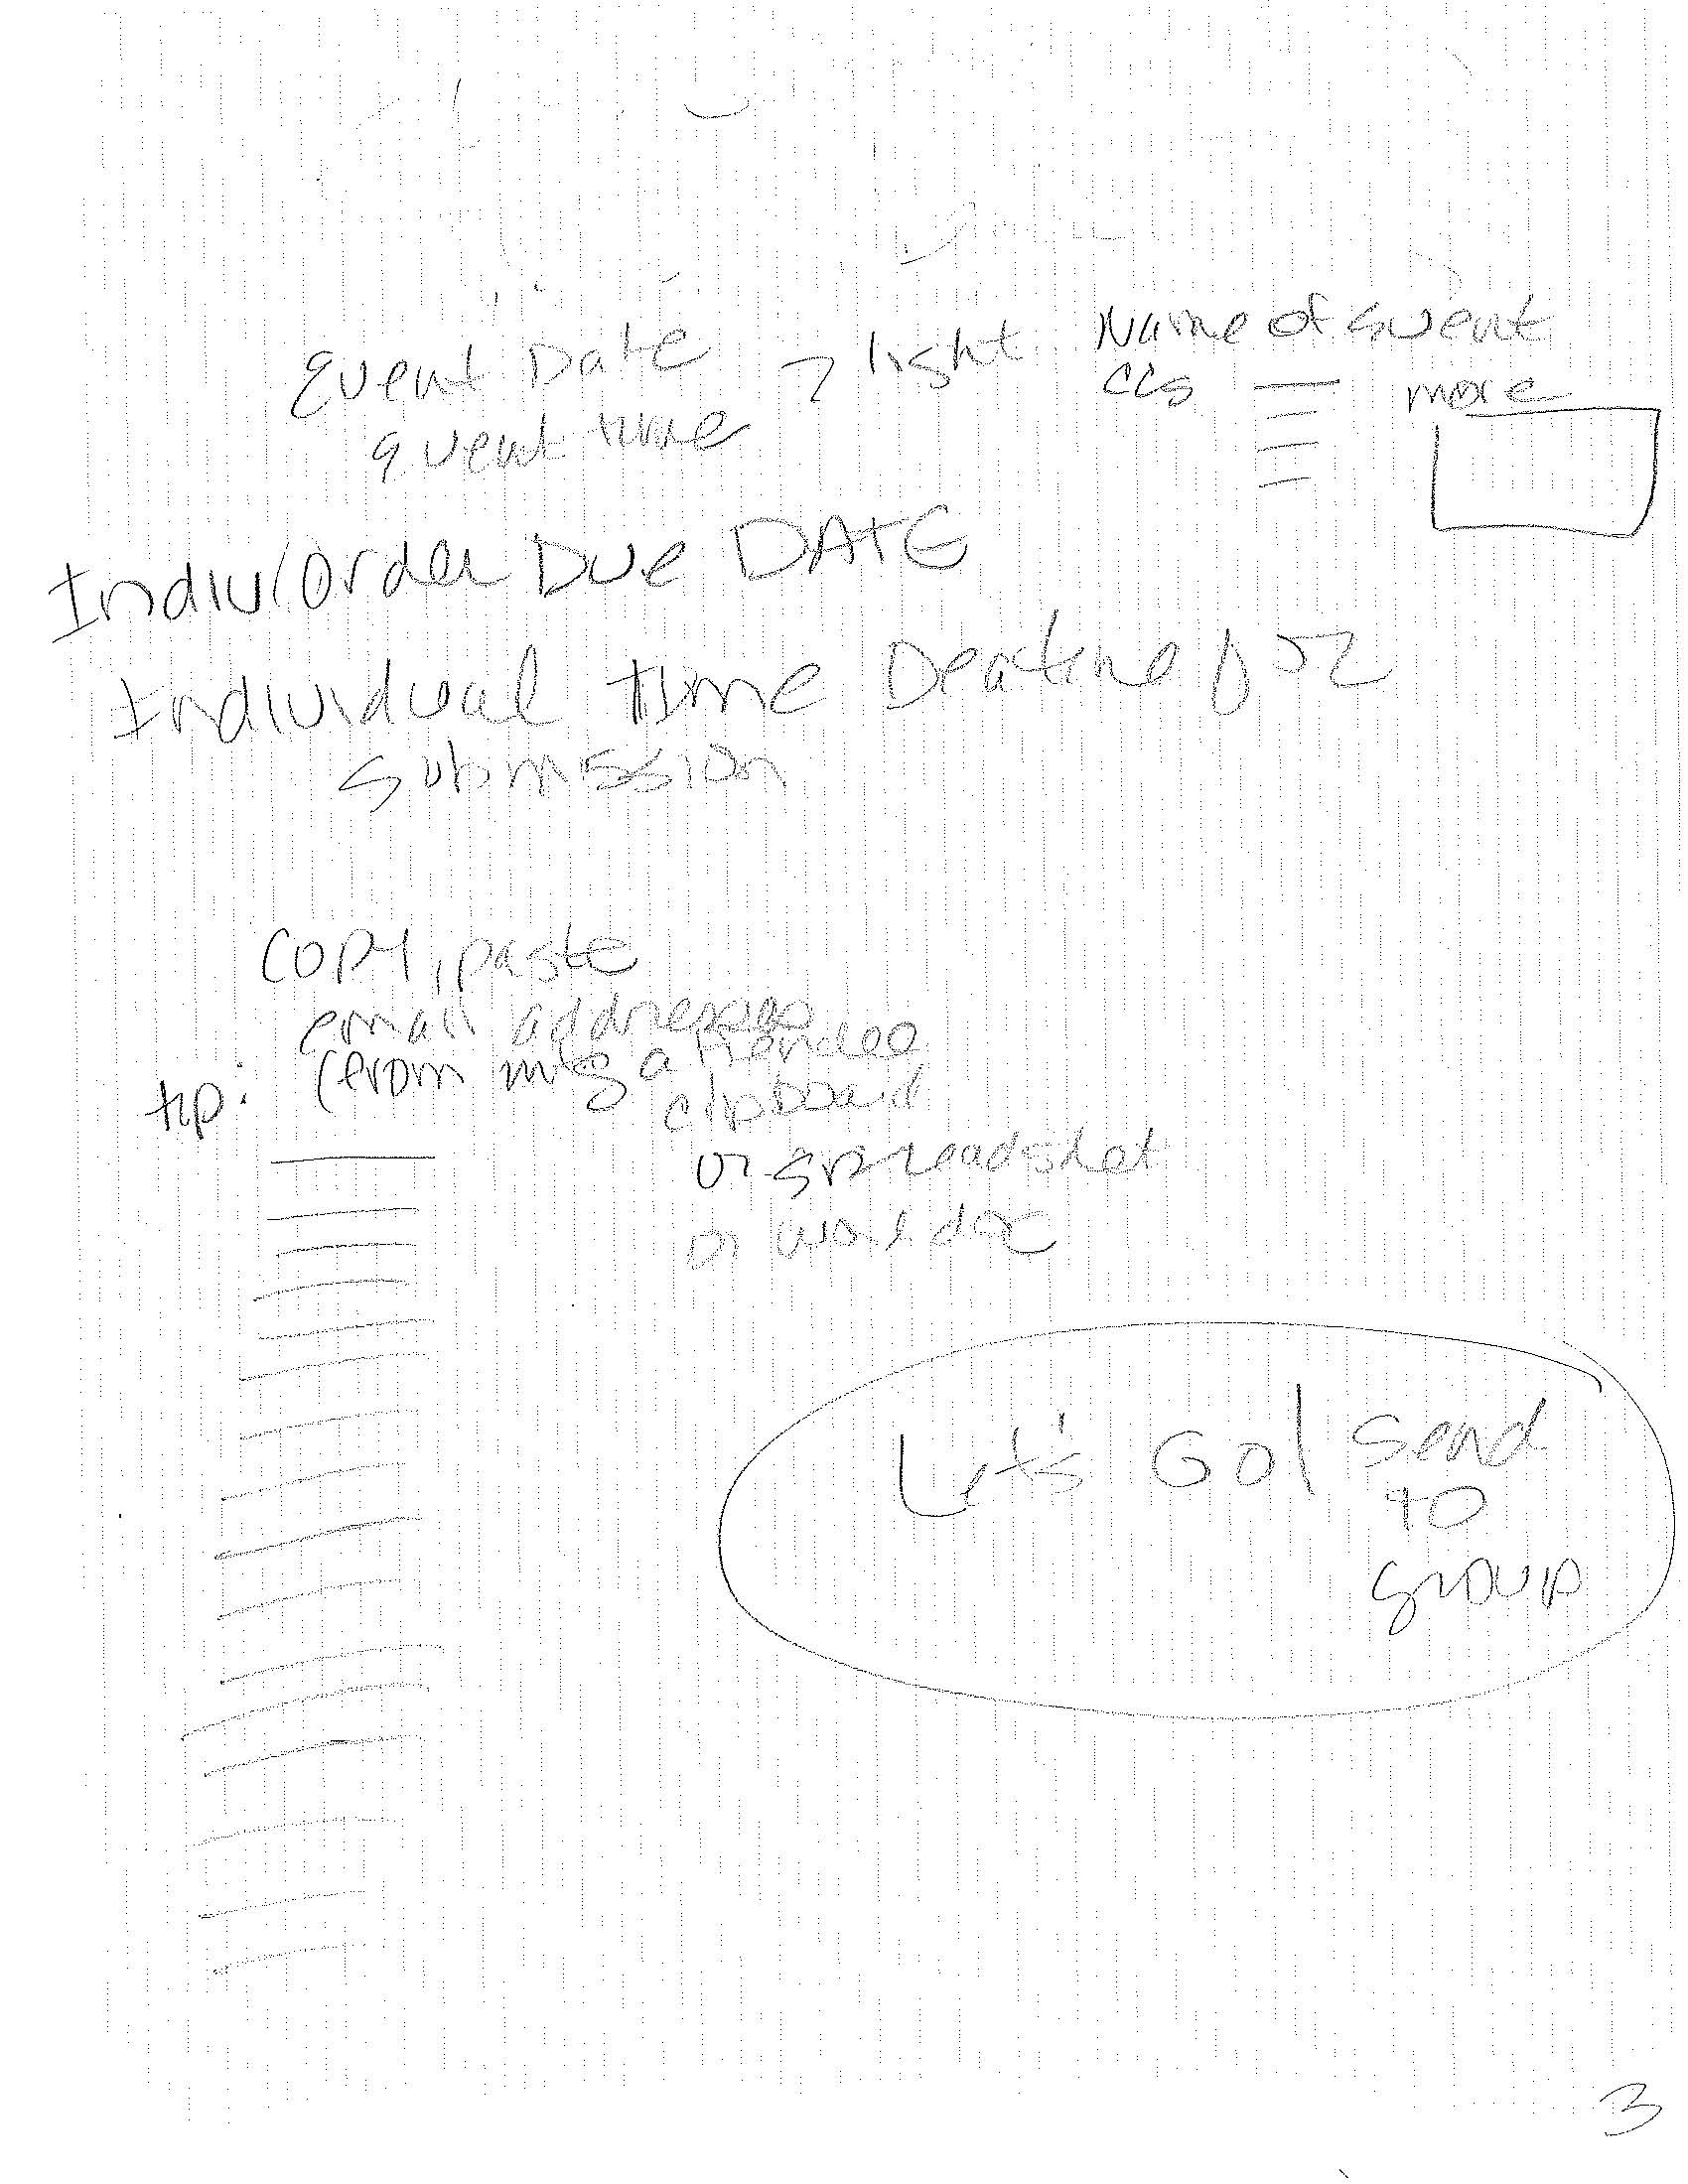 Event Date → light Name of event
event time CCs more
Indiv/Order Due DATE
Individual Time Deadline for
submission
COPY, paste
email addresses
tip: (from mtg attendee
clipboard
or spreadsheet
or word doc
Let's Go! Send
to
group
3